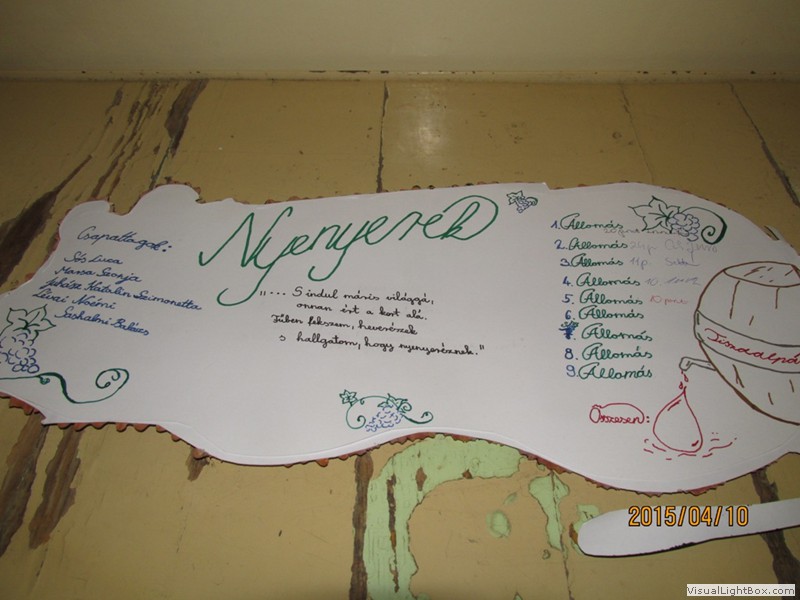 Csapattagok:
Sós Luca
Marsa Szonja
Juhász Katalin Szimonetta
Lévai Noémi
Sashalmi Balázs
Nyenyerék
"... S indul máris világgá,
onnan ért a kert alá.
Fűben fekszem, heverészek
s hallgatom, hogy nyenyeréznek."
1. Állomás
2. Állomás 24p.
3. Állomás 11p.
4. Állomás 10
5. Állomás 10 pont
6. Állomás
7. Állomás
8. Állomás
9. Állomás
Összesen:
2015/04/10
VisualLightBox.com